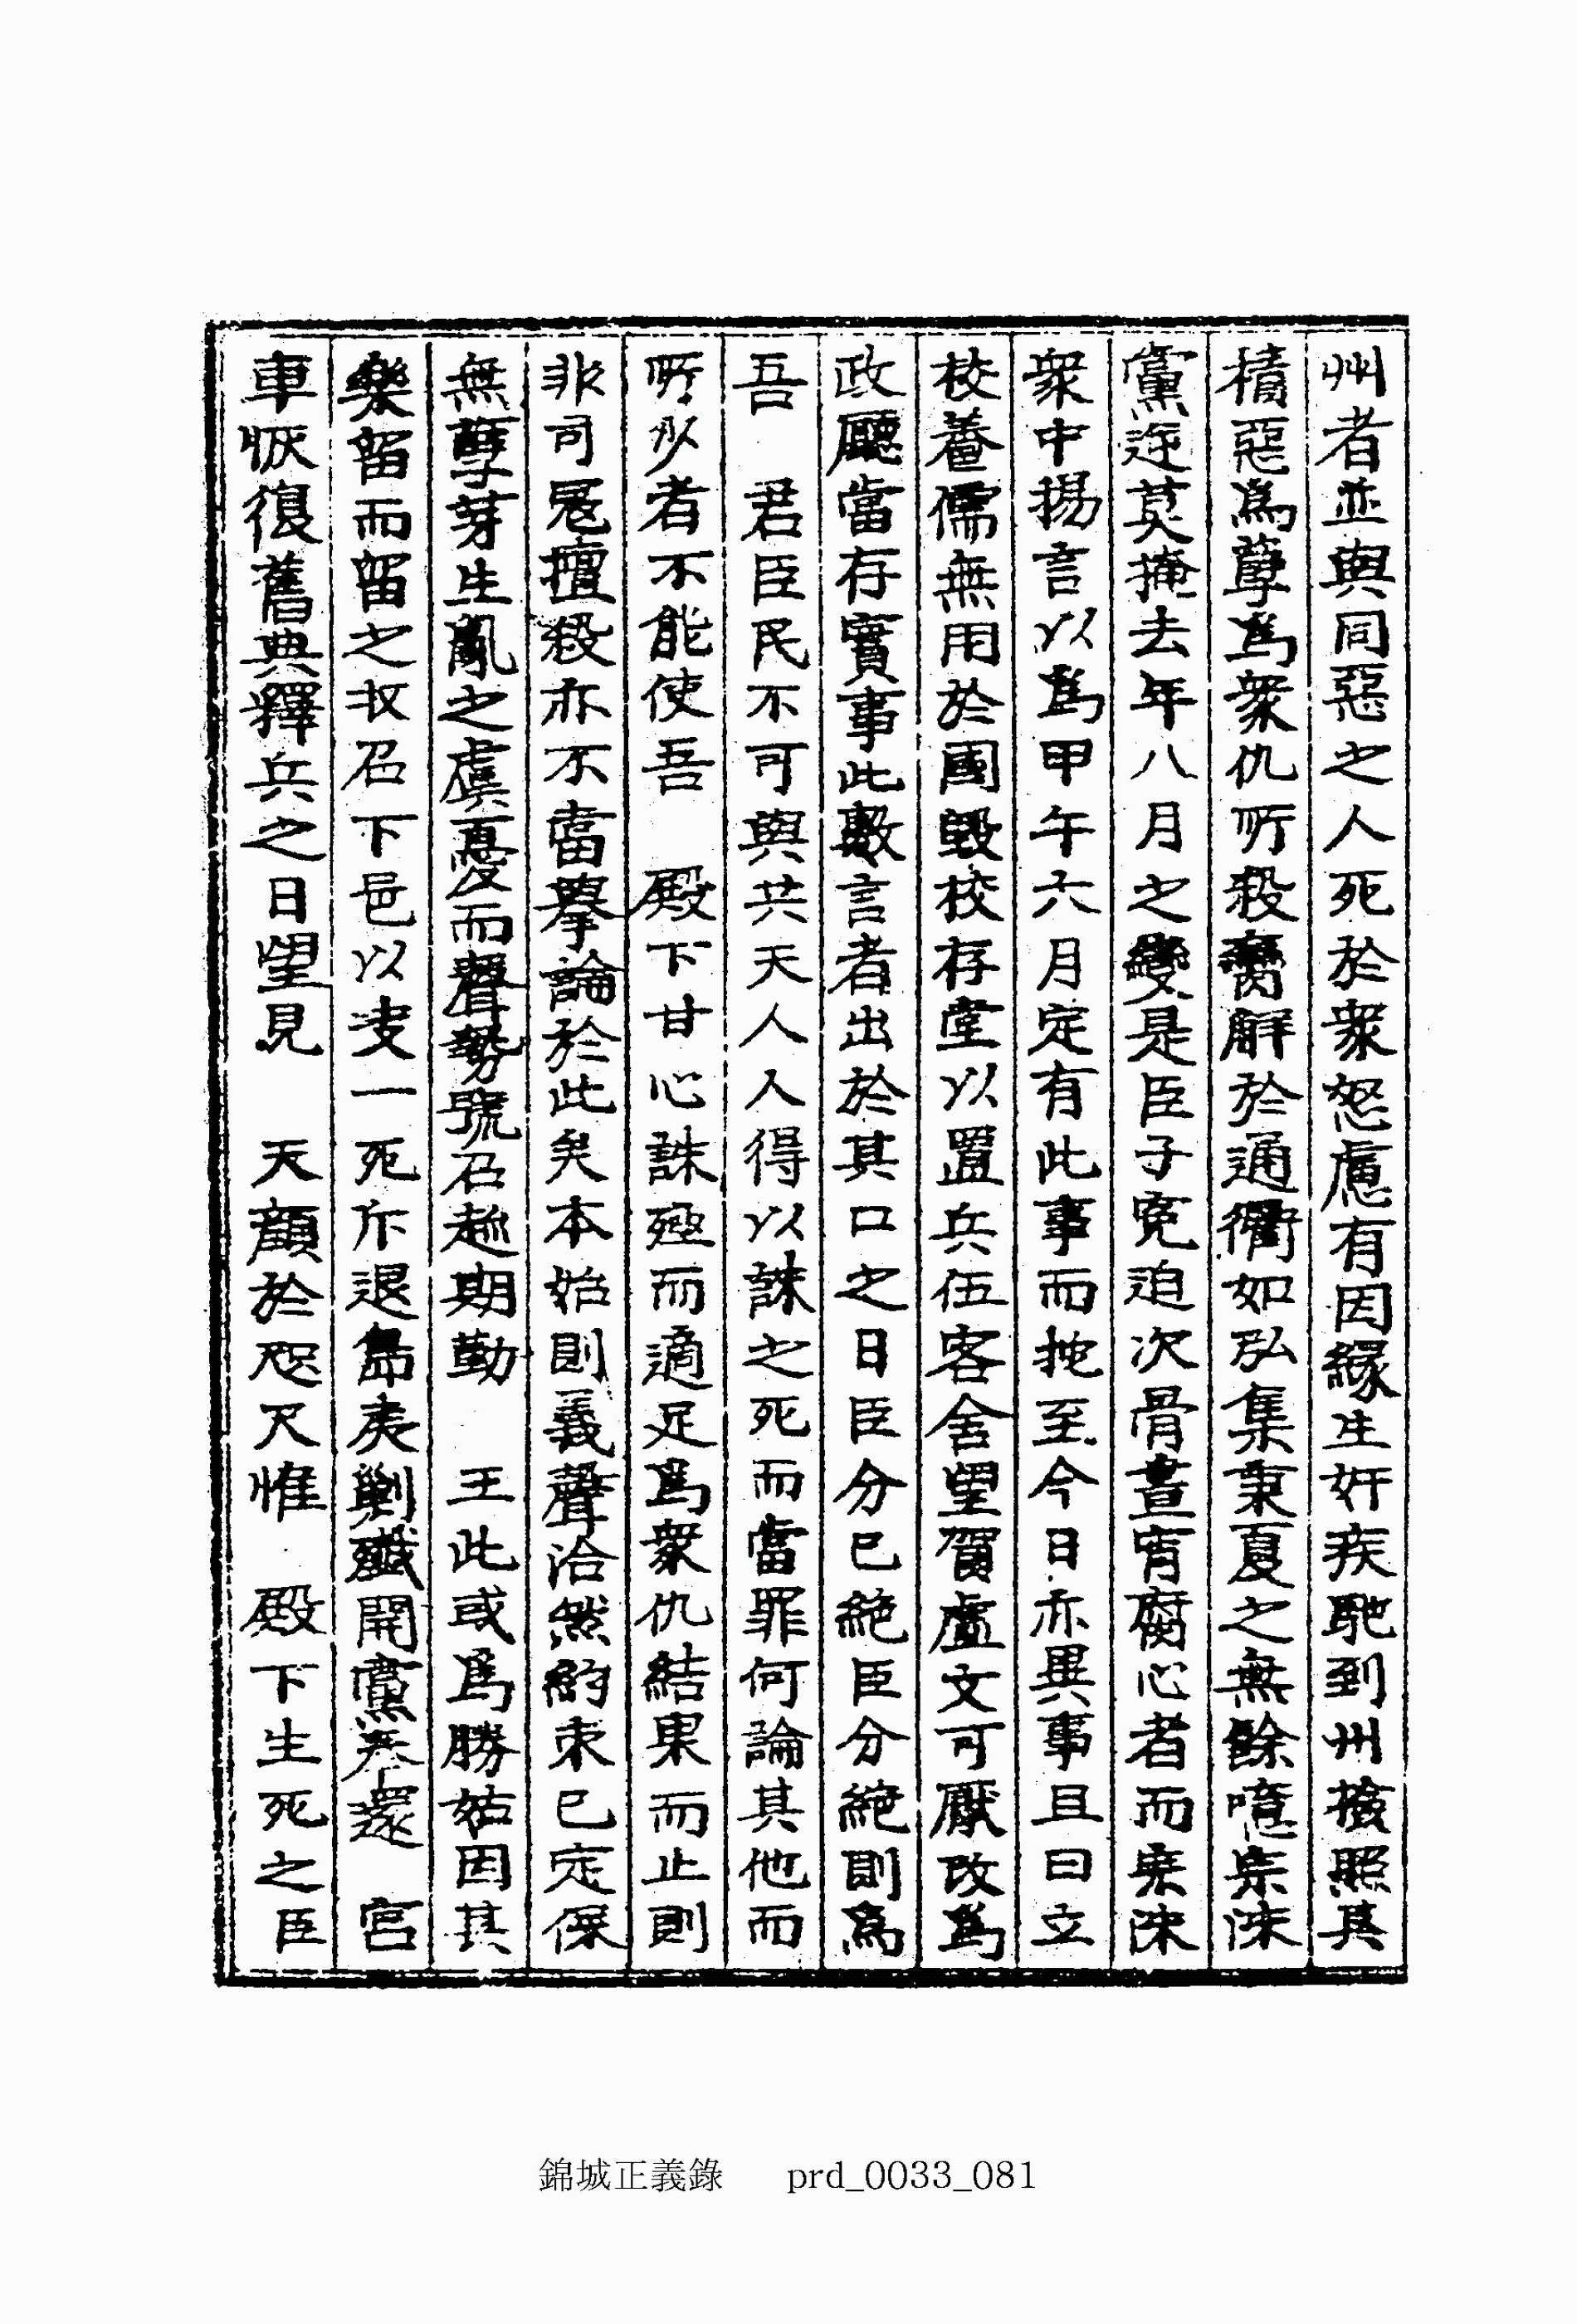 州者並與同惡之人死於衆怒慮有因緣生奸疾馳到州撿照其
積惡爲孽爲衆仇所殺臠解於通衢如弘集秉夏之無餘噫宗洙
黨逆莫掩去年八月之變是臣子寃迫次骨晝宵腐心者而宗洙
衆中揚言以爲甲午六月定有此事而拖至今日亦異事且曰立
校養儒無用於國毁校存堂以置兵伍客舍望賀虛文可厭改爲
政廳當存實事此數言者出於其口之日臣分已絶臣分絶則爲
吾 君臣民不可與共天人人得以誅之死而當罪何論其他而
所少者不能使吾 殿下甘心誅殛而適足爲衆仇結果而止則
非司冦擅殺亦不當擧論於此矣本始則義聲洽然約束已定保
無孽芽生亂之虞憂而聲勢號召趂期勤 王此或爲勝姑因其
樂留而留之收召下邑以決一死斥退島夷剿殲開黨奉還 宮
車恢復舊典釋兵之日望見 天顔於咫尺惟 殿下生死之臣
錦城正義錄 prd_0033_081